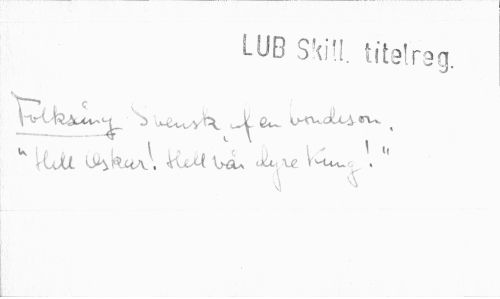 LUB Skill. titelreg.
Folksång Svensk, af en bondeson.
"Hell Oskar! Hell vår dyre Kung!"